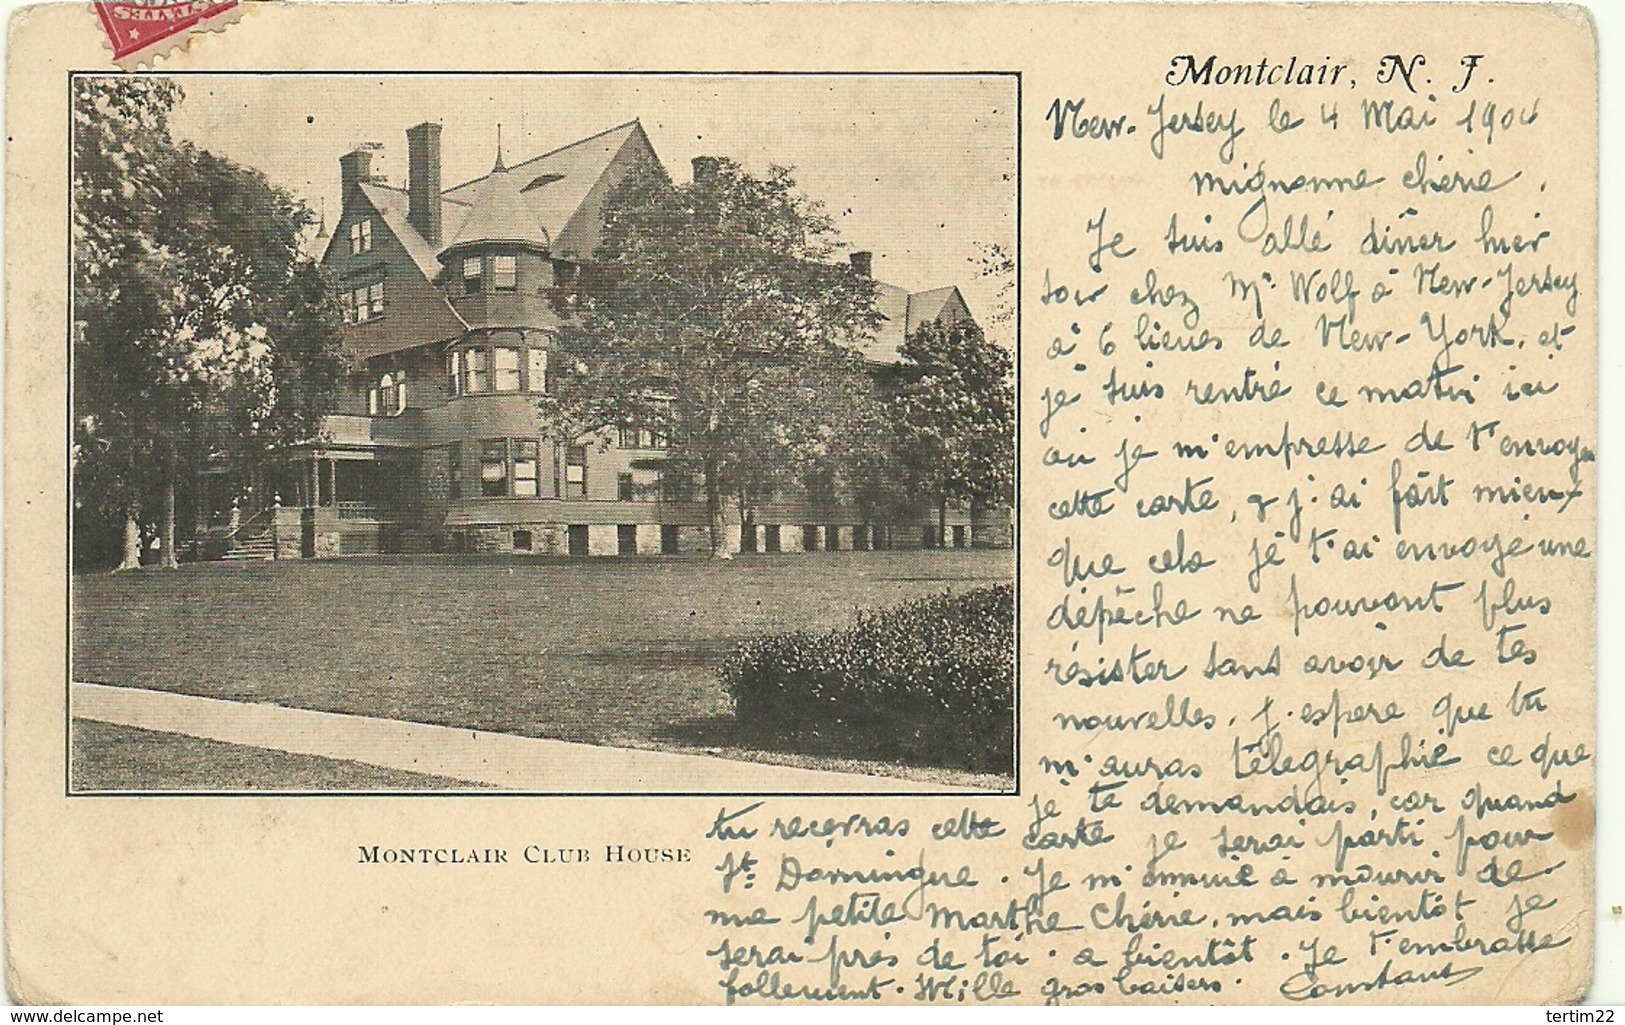 Montclair, N. J.
New-Jersey le 4 Mai 1904
mignonne chérie.
Je suis allé dîner hier
soir chez Mr Wolf à New-Jersey
à 6 lieues de New-York. et
je suis rentré ce matin ici
où je m'empresse de t'envoyer
cette carte, & j'ai fait mieux
que cela je t'ai envoyé une
dépêche ne pouvant plus
résister sans avoir de tes
nouvelles. j'espère que tu
m'auras télégraphié ce que
je te demandais, car quand
tu recevras cette carte je serai parti pour
St: Domingue. Je m'ennuie à mourir de
ma petite Marthe Chérie, mais bientôt je
serai près de toi. a bientôt. Je t'embrasse
follement. Mille gros baisers. Constant
MONTCLAIR CLUB HOUSE
www.delcampe.net
tertim22